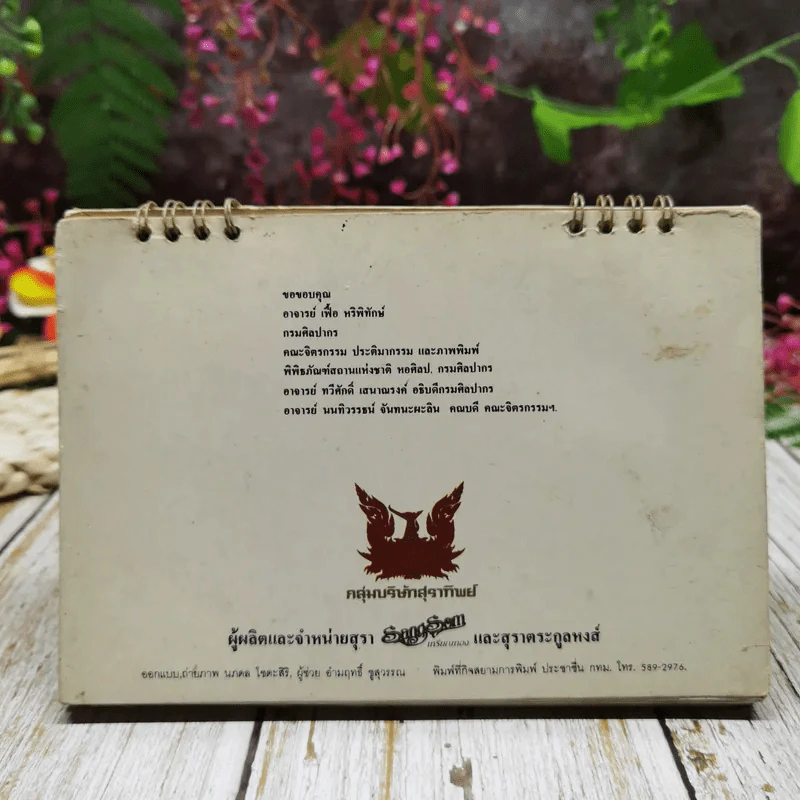 ขอขอบคุณ
อาจารย์ เฟื้อ หริพิทักษ์
กรมศิลปากร
คณะจิตรกรรม ประติมากรรม และภาพพิมพ์
พิพิธภัณฑ์สถานแห่งชาติ หอศิลป. กรมศิลปากร
อาจารย์ ทวีศักดิ์ เสนาณรงค์ อธิบดีกรมศิลปากร
อาจารย์ นนทิวรรธน์ จันทนะผะลิน คณบดี คณะจิตรกรรมฯ.
กลุ่มบริษัทสุราทิพย์
ผู้ผลิตและจำหน่ายสุรา SangSom เหรียญทอง และสุราตระกูลหงส์
ออกแบบ,ถ่ายภาพ นภดล โชตะสิริ, ผู้ช่วย อำมฤทธิ์ ชูสุวรรณ พิมพ์ที่กิจสยามการพิมพ์ ประชาชื่น กทม. โทร. 589-2976.